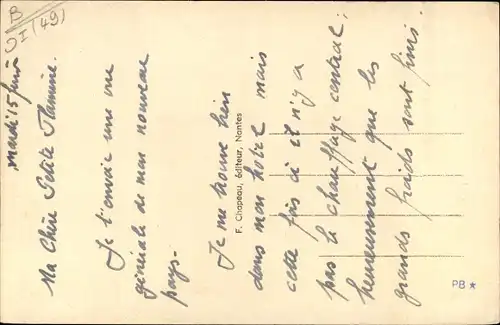 B
OI (49)
mardi 15 juin
Ma Chère Petite Flamine.
Je t'envoie une vue
générale de mon nouveau
pays.
Je me trouve bien
dans mon hotel mais
cette fois ci il n'y a
pas le chauffage central;
heureusement que les
grands froids sont finis.
F. Chapeau, éditeur, Nantes
PB ★